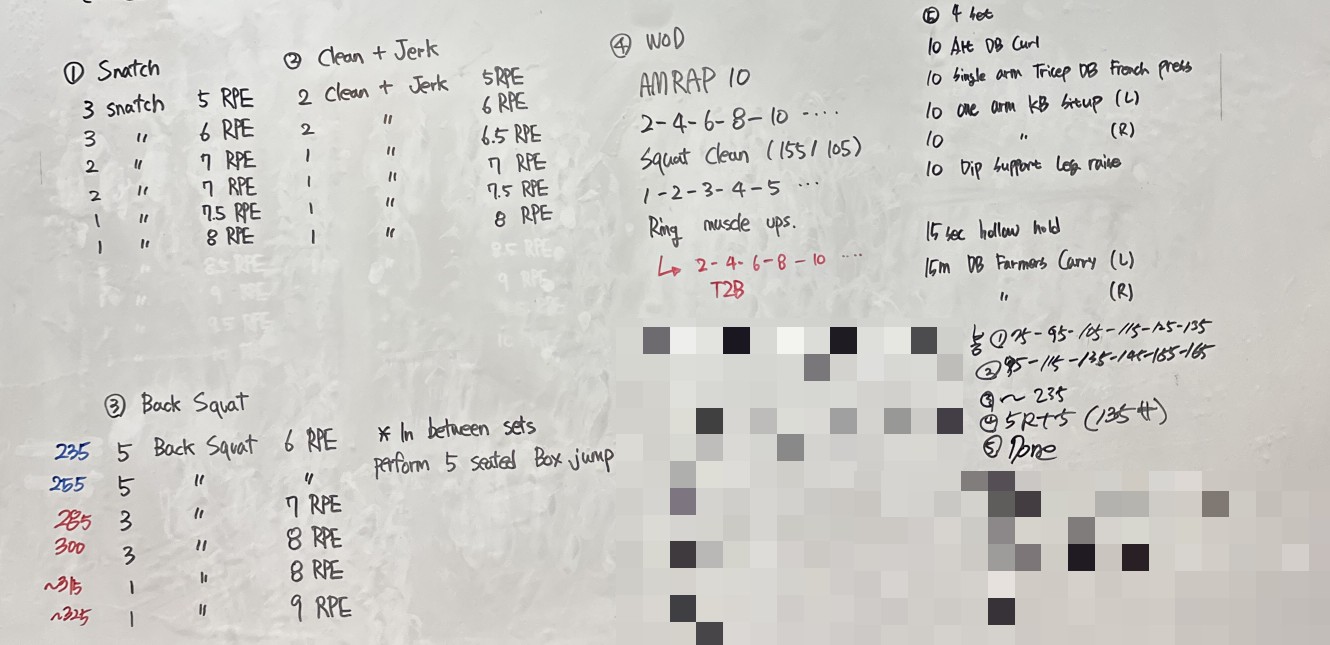 ① Snatch
3 snatch 5 RPE
3 〃 6 RPE
2 〃 7 RPE
2 〃 7 RPE
1 〃 7.5 RPE
1 〃 8 RPE
8.5 RPE
9 RPE
9.5 RPE
② Clean + Jerk
2 Clean + Jerk 5 RPE
2 〃 6 RPE
1 〃 6.5 RPE
1 〃 7 RPE
1 〃 7.5 RPE
1 〃 8 RPE
8.5 RPE
9 RPE
③ Back Squat
235 5 Back Squat 6 RPE
255 5 〃 〃
285 3 〃 7 RPE
300 3 〃 8 RPE
~315 1 〃 8 RPE
~325 1 〃 9 RPE
* In between sets
perform 5 seated Box jump
④ WOD
AMRAP 10
2-4-6-8-10 ....
Squat Clean (155/105)
1-2-3-4-5 ...
Ring muscle ups.
↳ 2-4-6-8-10 ....
T2B
⑤ 4 set
10 Alt DB Curl
10 Single arm Tricep DB French press
10 one arm KB situp (L)
10 〃 (R)
10 Dip support Leg raise
15 sec hollow hold
15m DB Farmers Carry (L)
〃 (R)
① 75-95-105-115-125-135
② 95-115-135-145-155-165
③ ~ 235
④ 5R+5 (135#)
⑤ Done